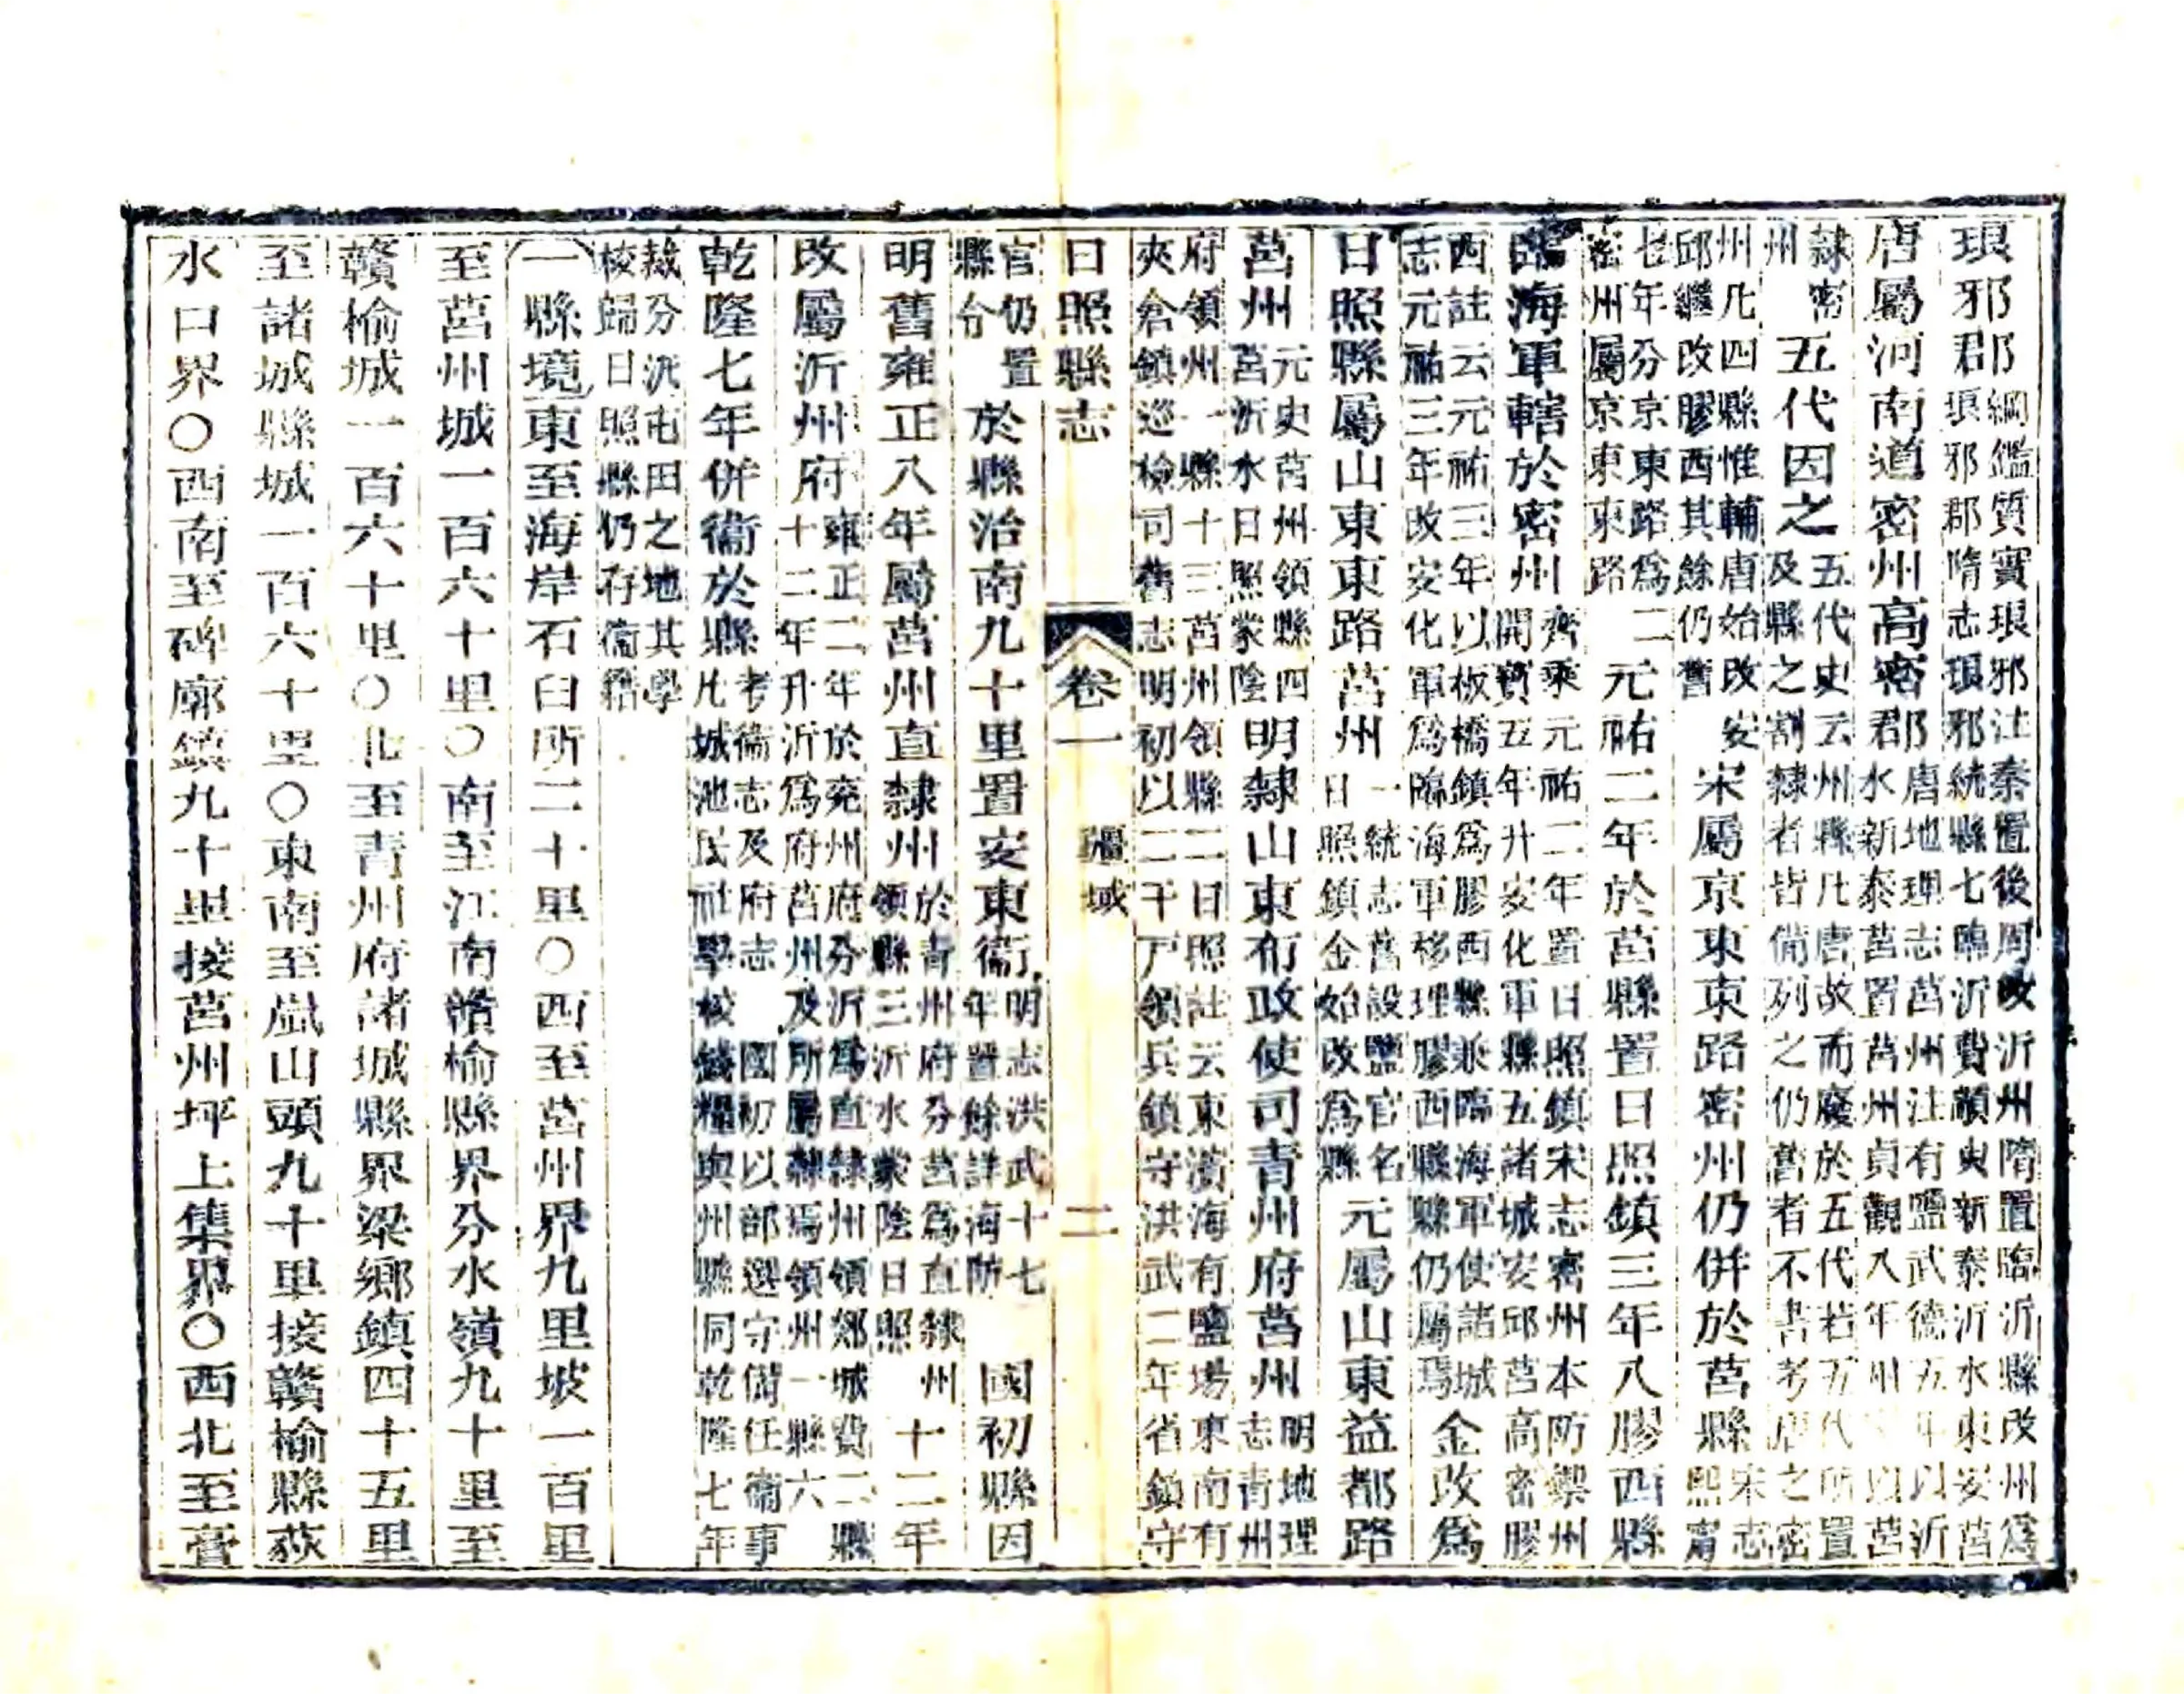 琅邪郡綱鑑質實琅邪注秦置後周改沂州隋置臨沂縣改州為琅邪郡隋志琅邪統縣七臨沂費顓臾新泰沂水東安莒
唐屬河南道密州高密郡唐地理志莒州注有鹽武德五年以沂水新泰莒置莒州貞觀八年州以莒
隸密州五代因之五代史云州縣凡唐故而廢於五代若五代所置及縣之割隸者皆備列之仍舊者不書考唐之密
州凡四縣惟輔唐始改安邱繼改膠西其餘仍舊宋屬京東東路密州仍併於莒縣宋志熙甯
七年分京東路為二密州屬京東東路元祐二年於莒縣置日照鎮三年八膠西縣
臨海軍轄於密州齊乘元祐二年置日照鎮宋志密州本防禦州開寶五年升安化軍縣五諸城安邱莒高密膠
西註云元祐三年以板橋鎮為膠西縣兼臨海軍使諸城志元祐三年改安化軍為臨海軍移理膠西縣縣仍屬焉金改為
日照縣屬山東東路莒州一統志舊設鹽官名日照鎮金始改為縣元屬山東益都路
莒州元史莒州領縣四莒沂水日照蒙陰明隸山東布政使司青州府莒州明地理志青州
府領州一縣十三莒州領縣二日照註云東濱海有鹽場東南有夾倉鎮巡檢司舊志明初以二千戸領兵鎮守洪武二年省鎮守
日照縣志 卷一 疆域 二
官仍置縣令於縣治南九十里置安東衞明志洪武十七年置餘詳海防國初縣因
明舊雍正八年屬莒州直隸州於青州府分莒為直隸州領縣三沂水蒙陰日照十二年
改屬沂州府雍正二年於兗州府分沂為直隸州領郯城費二縣十二年升沂為府莒州及所屬隸焉領州一縣六
乾隆七年併衞於縣考衞志及府志國初以部選守備任衞事凡城池民社學校錢糧與州縣同乾隆七年
裁分派屯田之地其學校歸日照縣仍存衞籍
一縣境東至海岸石臼所二十里〇西至莒州界九里坡一百里
至莒州城一百六十里〇南至江南贛榆縣界分水嶺九十里至
贛榆城一百六十里〇北至青州府諸城縣界梁鄉鎮四十五里
至諸城縣城一百六十里〇東南至嵐山頭九十里接贛榆縣荻
水口界〇西南至碑廓鎮九十里接莒州坪上集界〇西北至膏